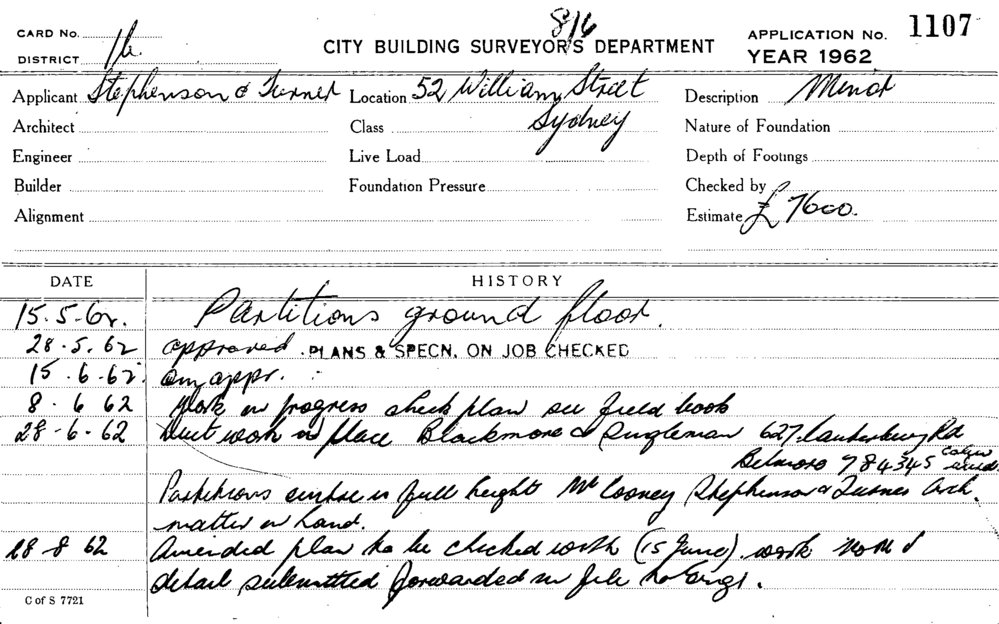 CARD No.
DISTRICT
8/6
CITY BUILDING SURVEYOR'S DEPARTMENT
APPLICATION No. 1107
YEAR 1962
Applicant Stephenson & Turner
Location 52 William Street
Sydney
Description Minor
Architect
Class
Nature of Foundation
Engineer
Live Load
Depth of Footings
Builder
Foundation Pressure
Checked by
Alignment
Estimate £ 7600.
DATE HISTORY
15.5.62. Partitions ground floor.
28.5.62 approved. PLANS & SPECN. ON JOB CHECKED
15.6.62. appr.
8.6 62 Work in progress check plan see field book
28-6-62 Duct work in place Blackmore & 627 Canterbury Rd
Belmore 784345
Partitions full height Mr Stephenson & Turner Arch.
matter in hand.
28-8 62 Amended plan to be checked with (15 June). work
detail submitted forwarded in file to Engr.
C of S 7721